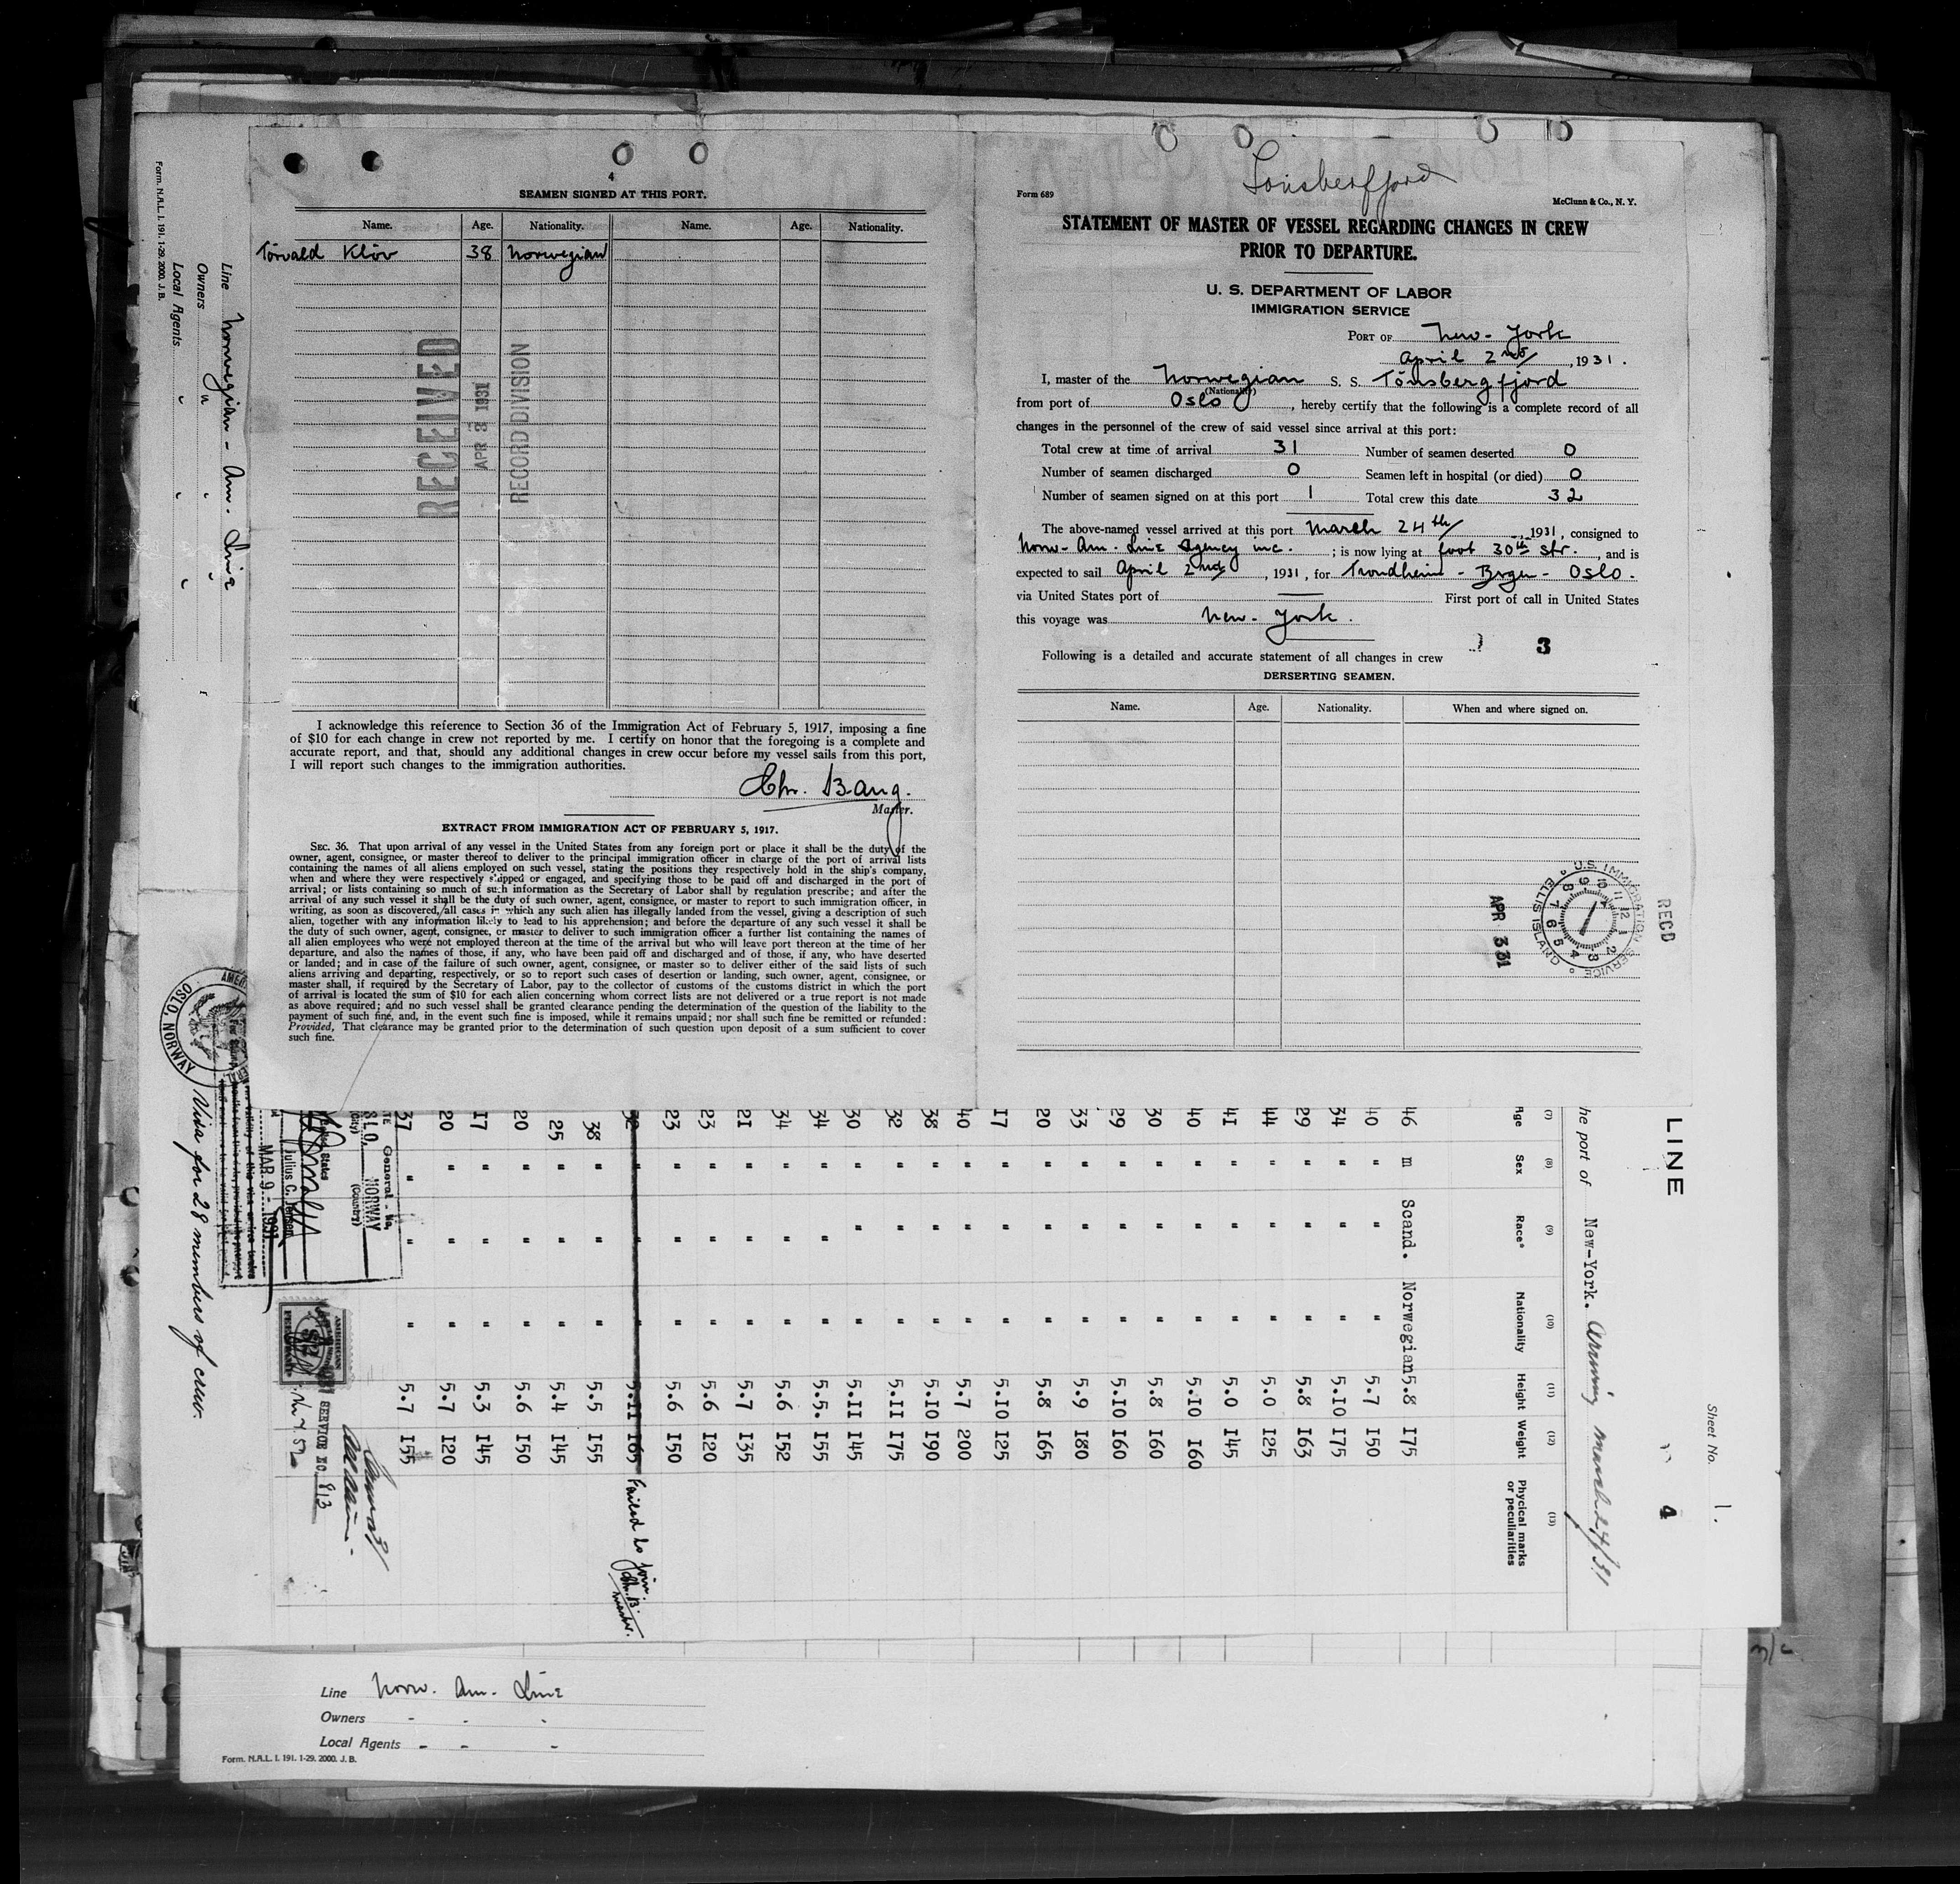 4
SEAMEN SIGNED AT THIS PORT.
Name. Age. Nationality. Name. Age. Nationality.
Torvald Klöv 38 Norwegian
RECEIVED
APR 3 1931
RECORD DIVISION
I acknowledge this reference to Section 36 of the Immigration Act of February 5, 1917, imposing a fine
of $10 for each change in crew not reported by me. I certify on honor that the foregoing is a complete and
accurate report, and that, should any additional changes in crew occur before my vessel sails from this port,
I will report such changes to the immigration authorities.
Chr. Bang.
Master.
EXTRACT FROM IMMIGRATION ACT OF FEBRUARY 5, 1917.
SEC. 36. That upon arrival of any vessel in the United States from any foreign port or place it shall be the duty of the
owner, agent, consignee, or master thereof to deliver to the principal immigration officer in charge of the port of arrival lists
containing the names of all aliens employed on such vessel, stating the positions they respectively hold in the ship's company,
when and where they were respectively shipped or engaged, and specifying those to be paid off and discharged in the port of
arrival; or lists containing so much of such information as the Secretary of Labor shall by regulation prescribe; and after the
arrival of any such vessel it shall be the duty of such owner, agent, consignee, or master to report to such immigration officer, in
writing, as soon as discovered, all cases in which any such alien has illegally landed from the vessel, giving a description of such
alien, together with any information likely to lead to his apprehension; and before the departure of any such vessel it shall be
the duty of such owner, agent, consignee, or master to deliver to such immigration officer a further list containing the names of
all alien employees who were not employed thereon at the time of the arrival but who will leave port thereon at the time of her
departure, and also the names of those, if any, who have been paid off and discharged and of those, if any, who have deserted
or landed; and in case of the failure of such owner, agent, consignee, or master so to deliver either of the said lists of such
aliens arriving and departing, respectively, or so to report such cases of desertion or landing, such owner, agent, consignee, or
master shall, if required by the Secretary of Labor, pay to the collector of customs of the customs district in which the port
of arrival is located the sum of $10 for each alien concerning whom correct lists are not delivered or a true report is not made
as above required; and no such vessel shall be granted clearance pending the determination of the question of the liability to the
payment of such fine, and, in the event such fine is imposed, while it remains unpaid; nor shall such fine be remitted or refunded:
Provided, That clearance may be granted prior to the determination of such question upon deposit of a sum sufficient to cover
such fine.
Tönsbergfjord
Form 689
McClunn & Co., N. Y.
STATEMENT OF MASTER OF VESSEL REGARDING CHANGES IN CREW
PRIOR TO DEPARTURE.
U. S. DEPARTMENT OF LABOR
IMMIGRATION SERVICE
PORT OF New-York
April 2nd, 1931.
I, master of the Norwegian S. S. Tönsbergfjord
(Nationality)
from port of Oslo, hereby certify that the following is a complete record of all
changes in the personnel of the crew of said vessel since arrival at this port:
Total crew at time of arrival 31 Number of seamen deserted 0
Number of seamen discharged 0 Seamen left in hospital (or died) 0
Number of seamen signed on at this port 1 Total crew this date 32
The above-named vessel arrived at this port March 24th, 1931, consigned to
Norw-Am. Line Agency inc.; is now lying at foot 30th str., and is
expected to sail April 2nd, 1931, for Trondheim - Brgen - Oslo.
via United States port of — First port of call in United States
this voyage was New-York.
3
Following is a detailed and accurate statement of all changes in crew
DERSERTING SEAMEN.
Name. Age. Nationality. When and where signed on.
RECD
U.S. IMMIGRATION SERVICE
ELLIS ISLAND
APR 3 31
Form. N.A.L. I. 191. 1-29. 2000. J. B.
Line Norwegian - Am. Line
Owners
Local Agents
LINE
Sheet No. 1.
4
the port of New-York. Arriving March 24/31
(7) (8) (9) (10) (11) (12) (13)
Age Sex Race* Nationality Height Weight Physical marks or peculiarities
46 m Scand. Norwegian 5.8 I75
40 " " " 5.7 I50
34 " " " 5.10 I75
29 " " " 5.8 I63
44 " " " 5.0 I25
41 " " " 5.0 I45
40 " " " 5.10 I60
30 " " " 5.8 I60
29 " " " 5.10 I60
33 " " " 5.9 I80
20 " " " 5.8 I65
I7 " " " 5.10 I25
40 " " " 5.7 200
38 " " " 5.10 I90
32 " " " 5.II I75
30 " " " 5.II I45
34 " " " 5.5. I55
34 " " " 5.6 I52
2I " " " 5.7 I35
23 " " " 5.6 I20
23 " " " 5.6 I50
32 " " " 5.II I65 Failed to join Chr. B. master.
38 " " " 5.5 I55
25 " " " 5.4 I45
20 " " " 5.6 I50
I7 " " " 5.3 I45
20 " " " 5.7 I20
37 " " " 5.7 I55
General
NORWAY
(City) (Country)
Julius C. Jensen
MAR 9 - 1931
OSLO, NORWAY
SERVICE NO. 813
Visa for 28 members of crew.
Line Norw. Am. Line
Owners - - -
Local Agents - - -
Form. N.A.L. I. 191. 1-29. 2000. J. B.
n/c